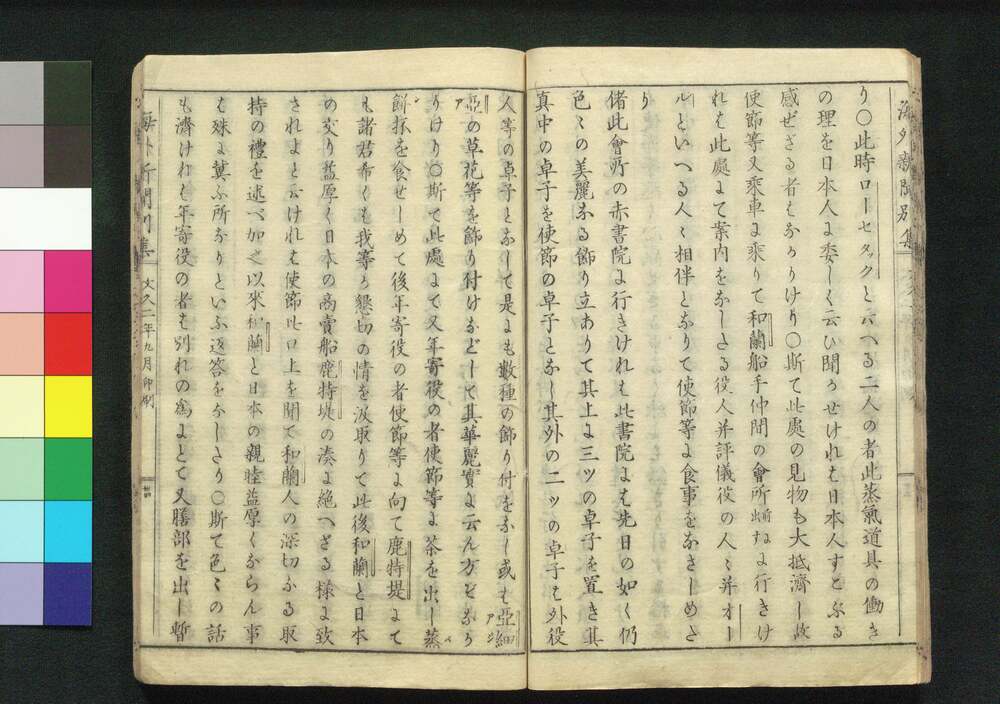 り〇此時ローセタックとバへる二人の者此蒸氣道具の働き
の理を日本人に委しく云ひ聞かせければ日本人すこぶる
感ぜざる者はなかりけり〇斯て此處の見物も大抵濟し故
使節等又乘車に乘りて和蘭船手仲間の會所に行きけ
れは此處にて案内をなしたる役人并評儀役の人々并オー
ルといへる人々相伴となりて使節等に食事をなさしめた
り
偖此會所の赤書院に行きけれは此書院には先日の如く仍
色々の美麗なる飾り立ありて其上に三ツの卓子を置き其
真中の卓子を使節の卓子となし其外の二ツの卓子は外役
人等の卓子となして是にも數種の飾り付をなし或は亞細
亞の草花等を飾り付けなどして其華麗實に云ん方なか
りけり〇斯て此處にて又年寄役の者使節等に茶を出し蒸
餅抔を食せしめて後年寄役の者使節等に向て鹿特堤にて
も諸君希くも我等の懇切の情を汲取りて此後和蘭と日本
の交り益厚く日本の商賣船鹿特堤の湊に絶へざる樣に致
されよと云けれは使節此口上を聞て和蘭人の深切なる取
持の禮を述べ加之以來和蘭と日本の親睦益厚くならん事
は殊に冀ふ所なりといふ返答をなしたり〇斯て色々の話
も濟けれは年寄役の者は別れの為にとて又膳部を出し暫
海外新聞別集
文久二年九月印刷